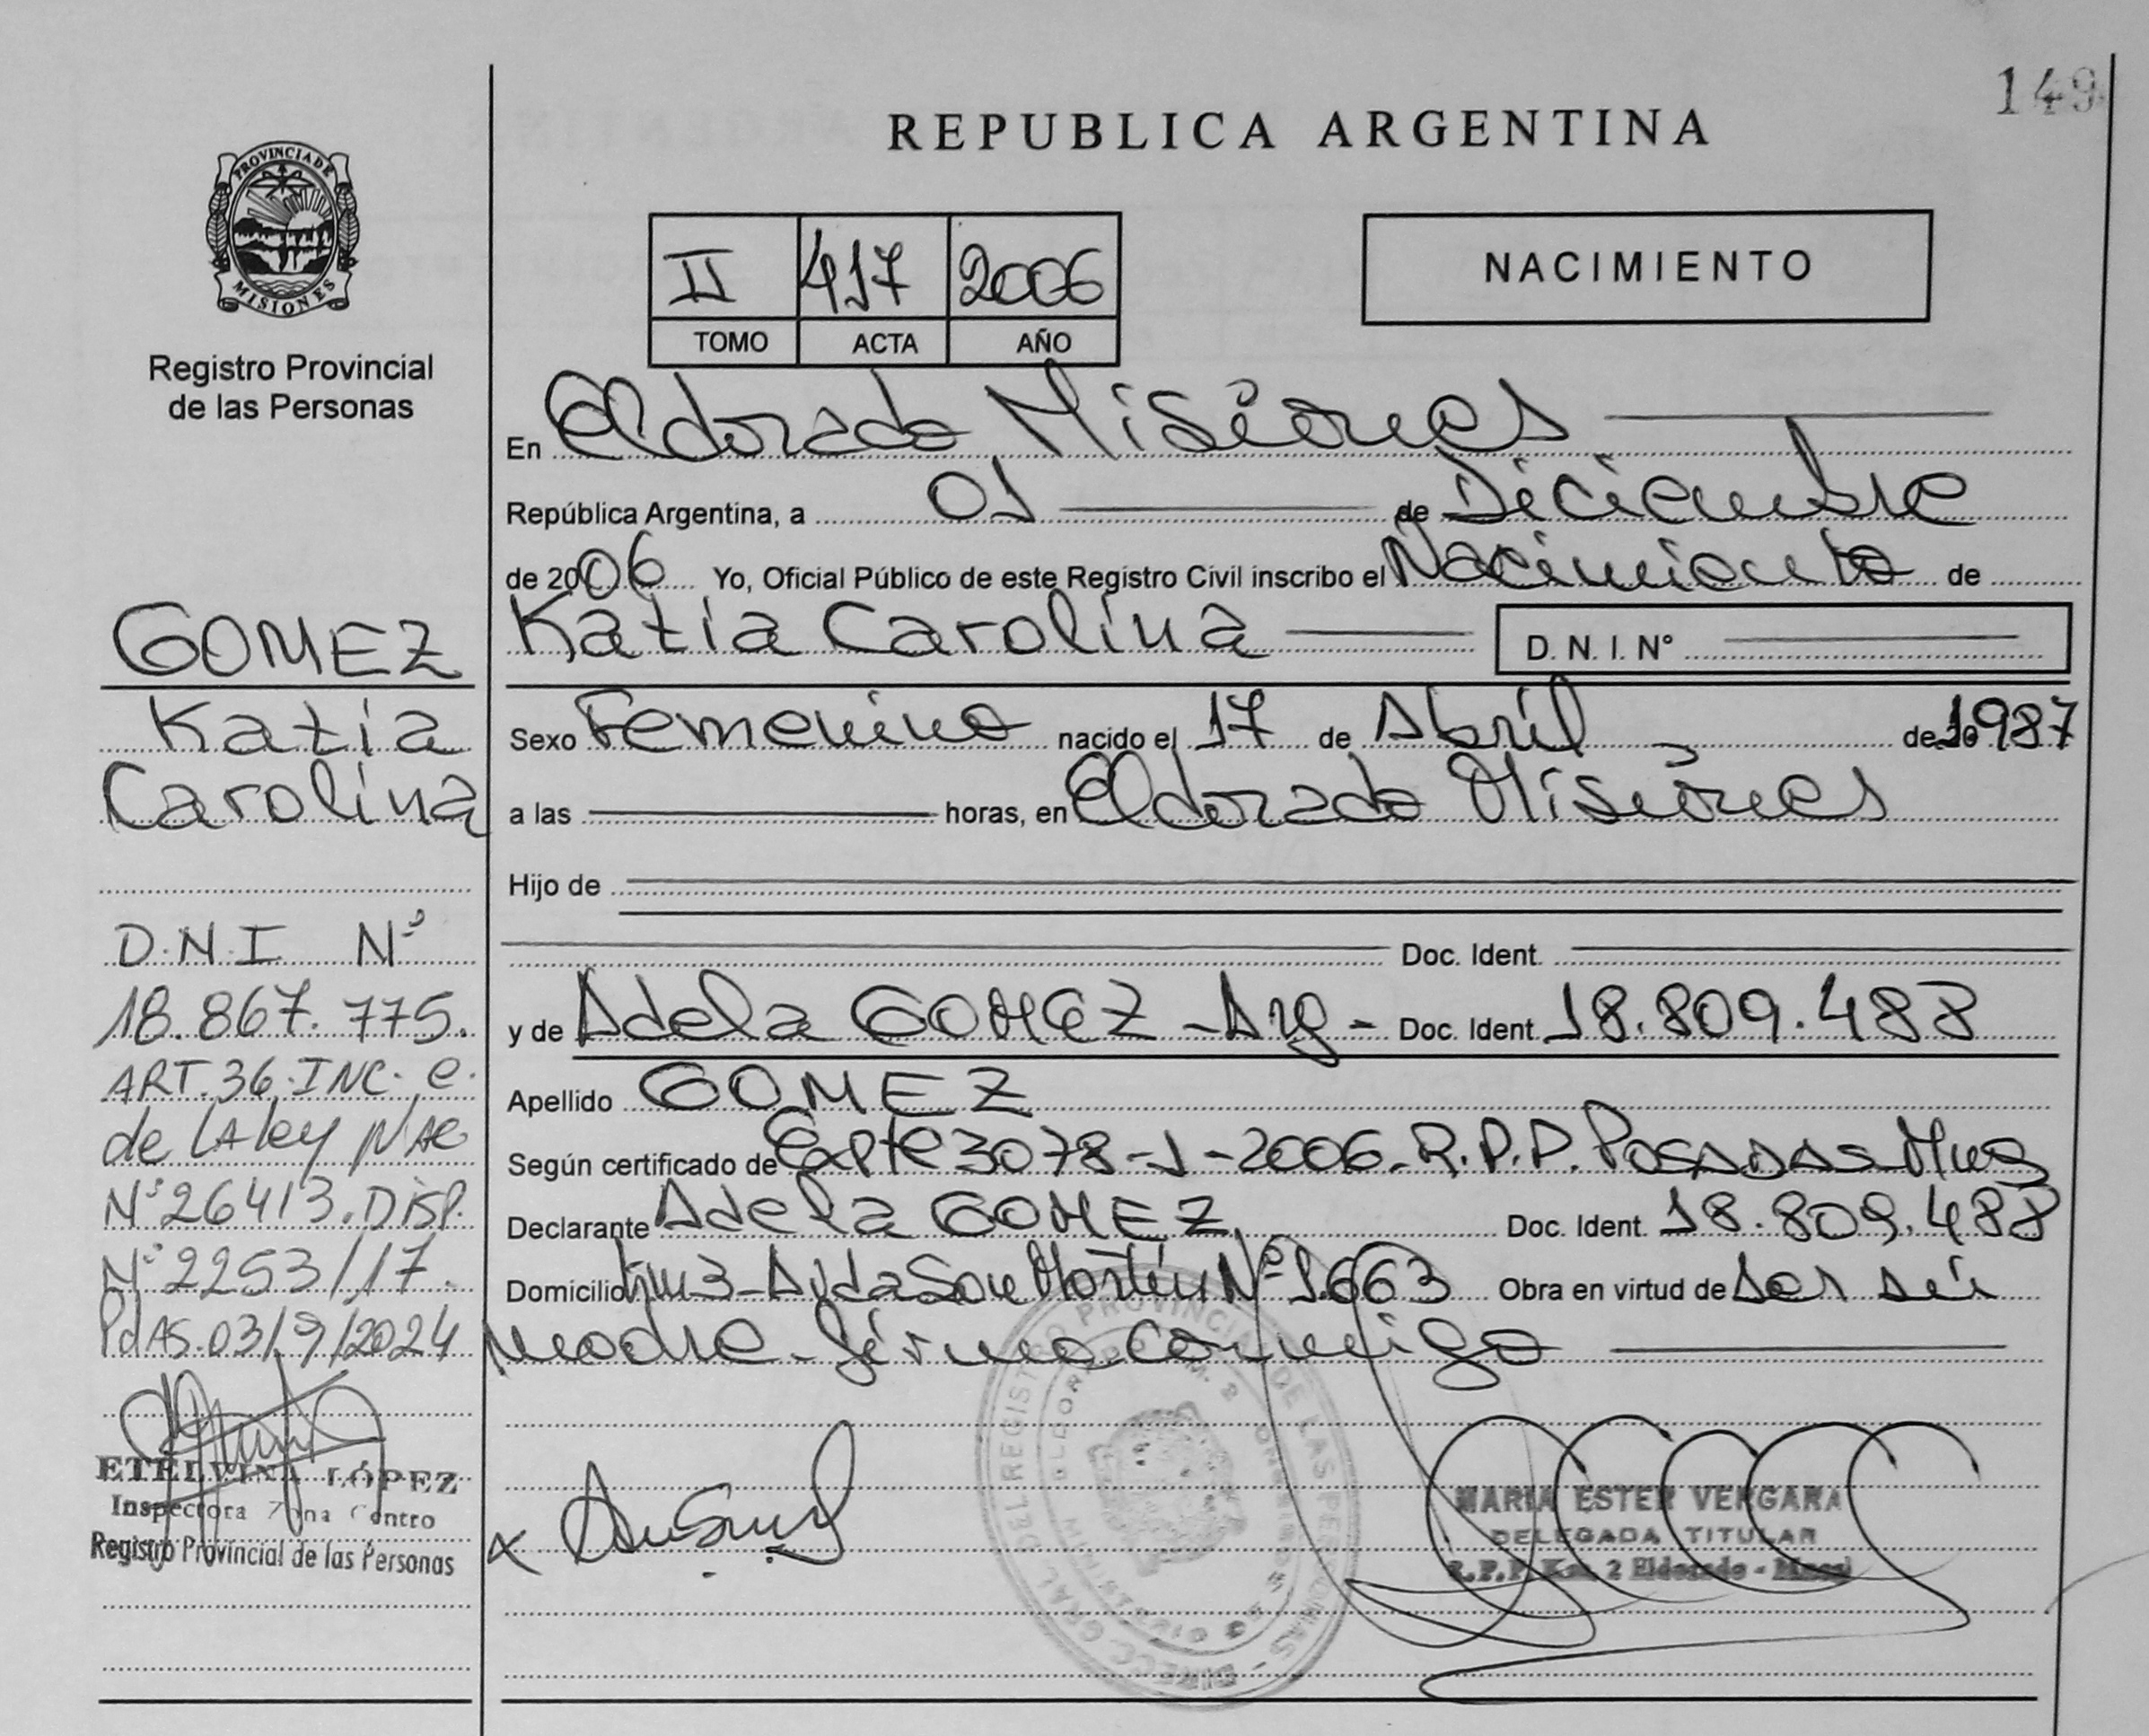 149
REPUBLICA ARGENTINA
PROVINCIA DE
MISIONES
Registro Provincial
de las Personas
II 417 2006
TOMO ACTA AÑO
NACIMIENTO
En Eldorado Misiones
República Argentina, a 01 de Diciembre
de 2006 Yo, Oficial Público de este Registro Civil inscribo el Nacimiento de
Katia Carolina D. N. I. Nº
Sexo Femenino nacido el 17 de Abril de 1987
a las horas, en Eldorado Misiones
Hijo de
Doc. Ident.
y de Adela GOMEZ - Arg - Doc. Ident. 18.809.488
Apellido GOMEZ
Según certificado de Expte 3078-1-2006. R.P.P. Posadas Mnes
Declarante Adela GOMEZ Doc. Ident. 18.809.488
Domicilio Km 3 - Avda San Martín Nº 1.663 Obra en virtud de ser su
madre. firma conmigo
GOMEZ
Katia
Carolina
D.N.I Nº
18.867.775.
ART. 36. INC. e.
de LA ley NAC
Nº 26413. DISP.
Nº 2253/17.
PdAS. 03/9/2024
ETELVINA LÓPEZ
Inspectora Zona Centro
Registro Provincial de las Personas
x
MARIA ESTER VERGARA
DELEGADA TITULAR
R.P.P. Km. 2 Eldorado - Mnes
DIRECC. GRAL. DEL REGISTRO PROVINCIAL DE LAS PERSONAS
ELDORADO KM. 2